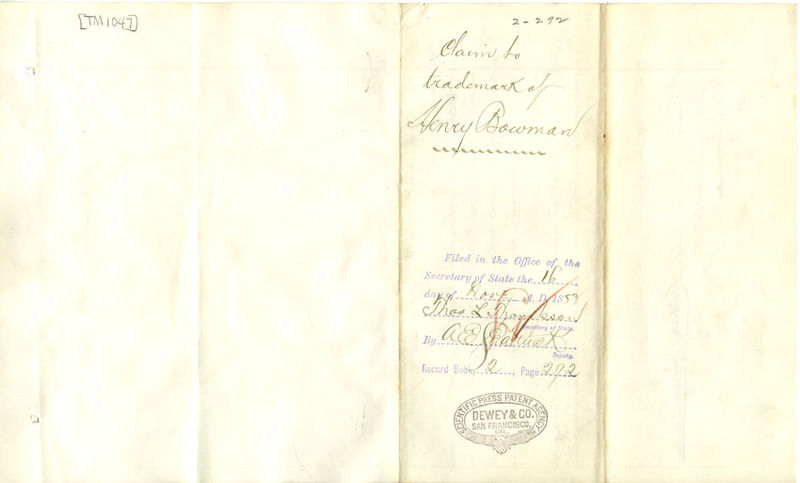 [TM1047]
2-292
Claim to
trademark of
Henry Bowman
Filed in the Office of the
Secretary of State the 16
day of Nov. A. D. 188
Thos L Thompson
Secretary of State.
By A. E.
Deputy.
Record Book, 2, Page 292
SCIENTIFIC PRESS PATENT AGENCY
DEWEY & CO.
SAN FRANCISCO,
CAL.